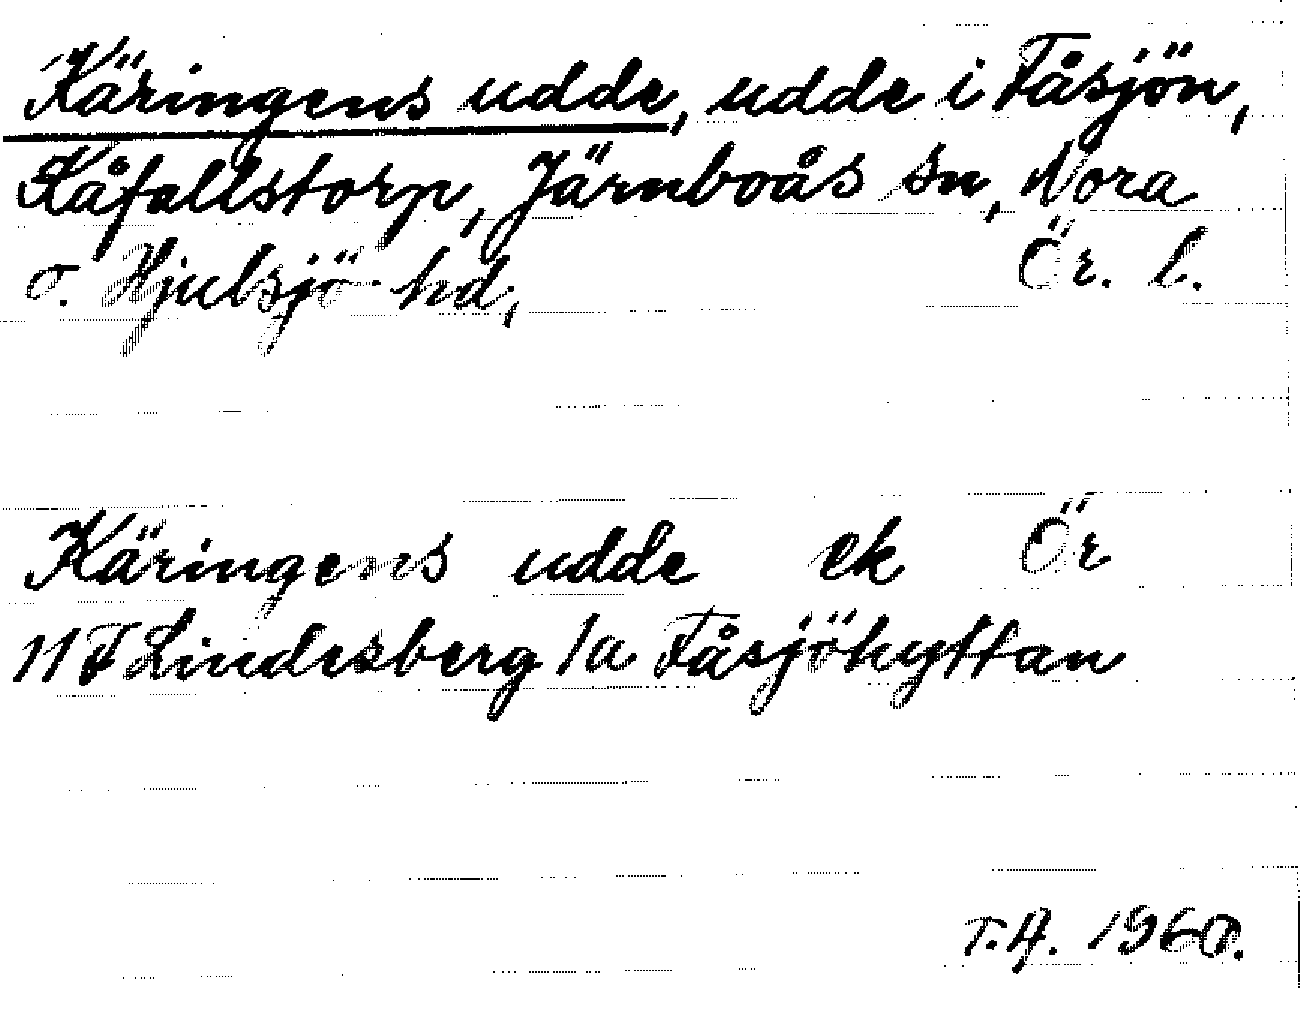 Käringens udde, udde i Fåsjön,
Kåfallstorp, Järnboås sn, Nora
o. Hjulsjö hd, Ör. l.
Käringens udde ek Ör
11 F Lindesberg 1a Fåsjöhyttan
T.A. 1960.